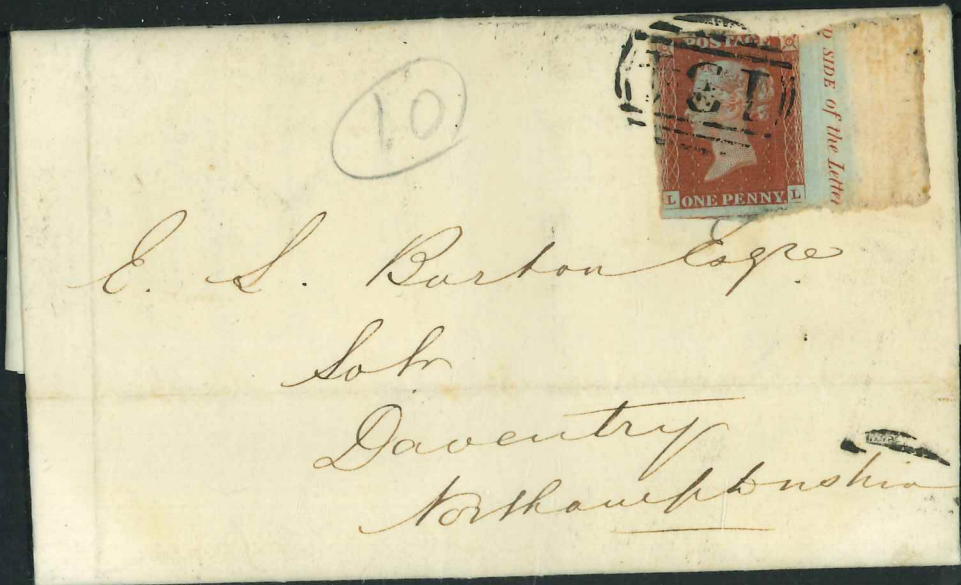 10
POSTAGE
L ONE PENNY L
SIDE of the Letter
E. S. Burton Esqre
Solr
Daventry
Northamptonshire